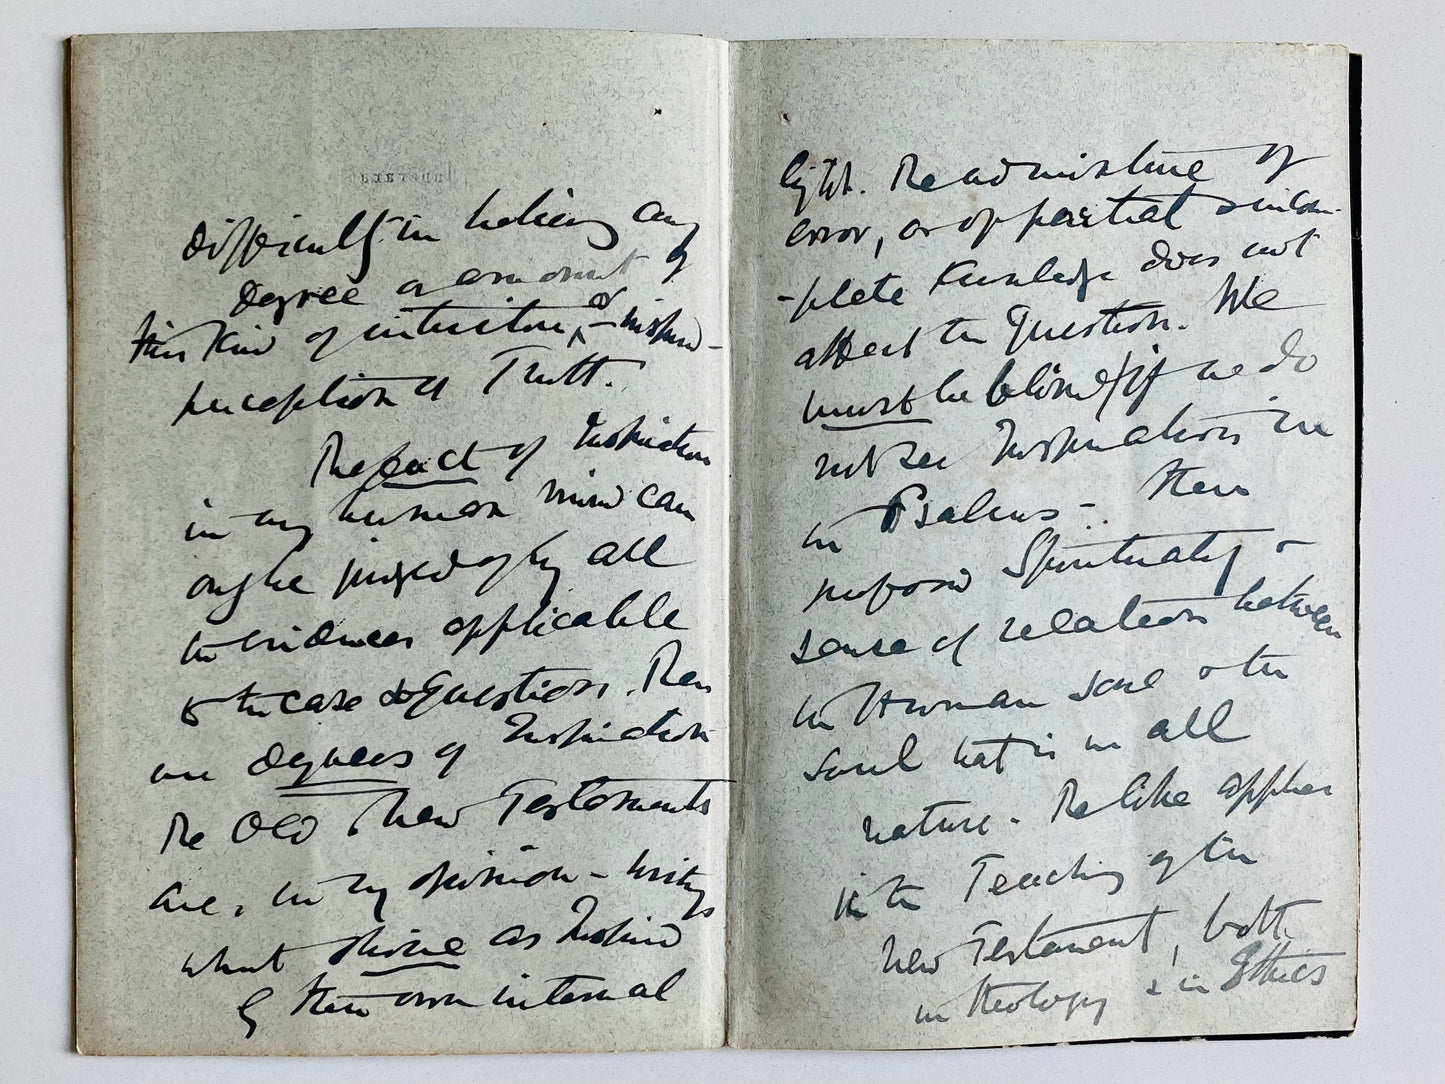 difficulty in believing any
degree or amount of
this kind of intuition, or inspired
perception of Truth.
The fact of Inspiration
in any human mind can
only be judged of by all
the evidences applicable
to the case & question. There
are degrees of Inspiration
The Old & New Testaments
are, in my opinion - writings
what shine as Inspired
by their own internal
light. The admixture of
error, or of partial & incom-
-plete knowledge does not
affect the Question. We
must be blind if we do
not see Inspiration in
the Psalms - their
profound Spirituality &
sense of relation between
the Human soul & the
soul that is in all
nature. The like applies
to the Teaching of the
New Testament, both
in theology & in Ethics